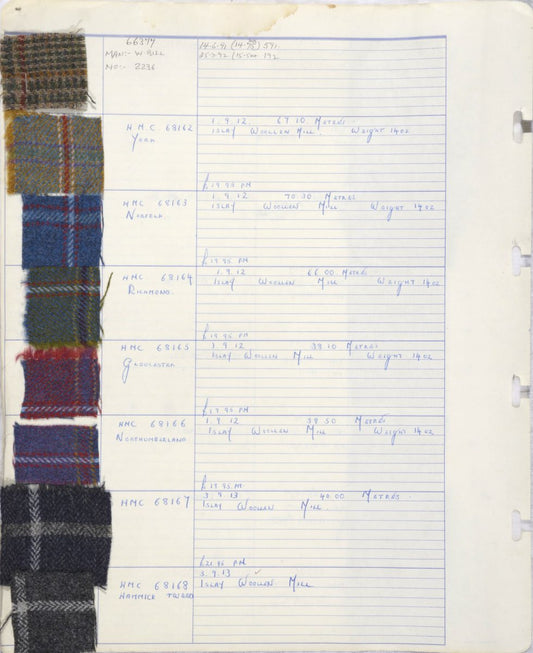 66377
MAN:- W. BILL
NO:- 2236
HMC 68162
YORK
1. 9. 12. 67 10 METRES.
ISLAY WOOLLEN MILL. WEIGHT 14OZ
£19.95 PM
HMC 68163
NORFOLK.
1. 9. 12 70.30 METRES
ISLAY WOOLLEN MILL WEIGHT 14OZ
£19.95 PM
HMC 68164
RICHMOND.
1. 9. 12 66 00 METRES
ISLAY WOOLLEN MILL WEIGHT 14OZ
£19.95 PM
HMC 68165
GLOUCESTER
1. 9. 12 38 10 METRES
ISLAY WOOLLEN MILL WEIGHT 14OZ
£19.95 PM
HMC 68166
NORTHUMBERLAND
1. 9. 12 38 50 METRES
ISLAY WOOLLEN MILL WEIGHT 14OZ
£19.95.M
HMC 68167
3. 9. 13 40.00 METRES.
ISLAY WOOLLEN MILL.
£21.95 PM
HMC 68168
HAMMICK TWEED
3. 9. 13 ✓
ISLAY WOOLLEN MILL